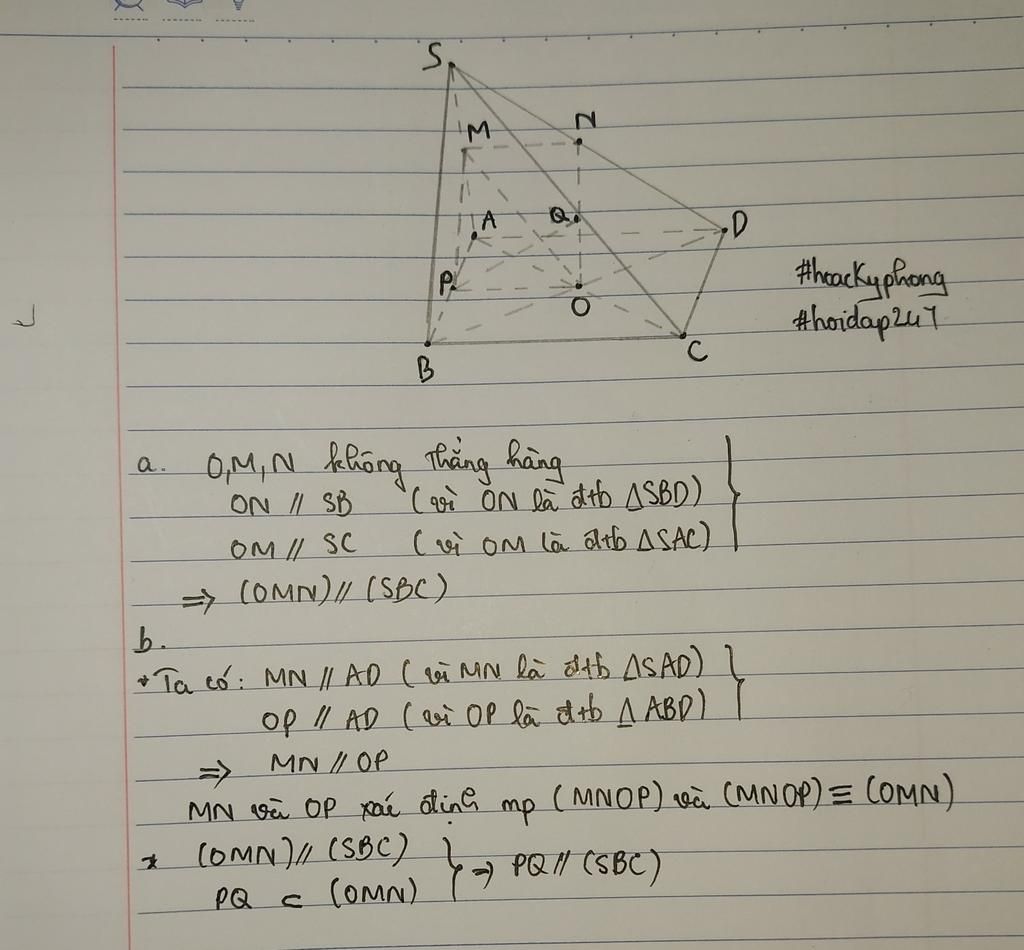 S
M
N
A
Q
D
P
O
B
C
#hoackyphong
#hoidap247
a. O,M,N không thẳng hàng
ON // SB (vì ON là đtb ΔSBD)
OM // SC (vì OM là đtb ΔSAC)
=> (OMN) // (SBC)
b.
* Ta có: MN // AD (vì MN là đtb ΔSAD)
OP // AD (vì OP là đtb ΔABD)
=> MN // OP
MN và OP xác định mp (MNOP) và (MNOP) ≡ (OMN)
* (OMN) // (SBC)
PQ ⊂ (OMN) } => PQ // (SBC)